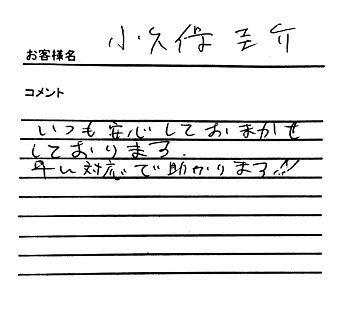 小久保 圭介
お客様名
コメント
いつも安心しておまかせ
しております.
早い対応で助かります!!